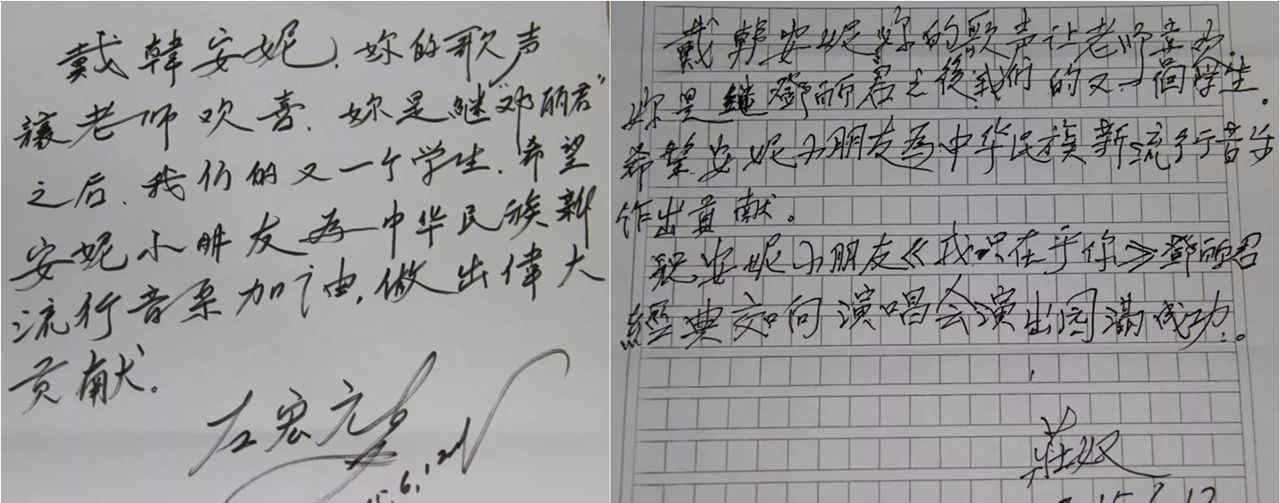 戴韓安妮，妳的歌声
讓老师欢喜．妳是继"邓丽君"
之后．我们的又一个学生．希望
安妮小朋友为中华民族新
流行音乐加油，做出偉大
贡献．
左宏元
6,12
戴韓安妮妳的歌声让老师喜欢
妳是繼鄧丽君之後我们的又一個学生．
希望安妮小朋友為中华民族新流行音乐
作出贡献。
祝安妮小朋友《我只在乎你》鄧丽君
經典交响演唱会演出圆滿成功。
莊奴